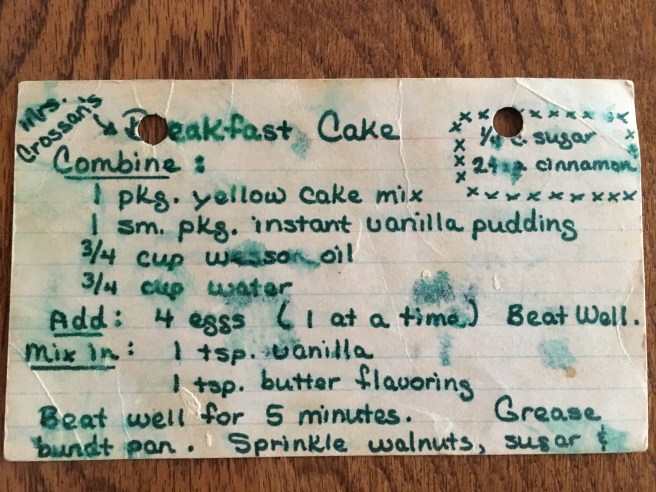 Mrs.
Crossan's
Breakfast Cake
1/4 c. sugar
cinnamon
Combine:
1 pkg. yellow cake mix
1 sm. pkg. instant vanilla pudding
3/4 cup wesson oil
3/4 cup water
Add: 4 eggs (1 at a time) Beat Well.
Mix in: 1 tsp. vanilla
1 tsp. butter flavoring
Beat well for 5 minutes. Grease
bundt pan. Sprinkle walnuts, sugar &